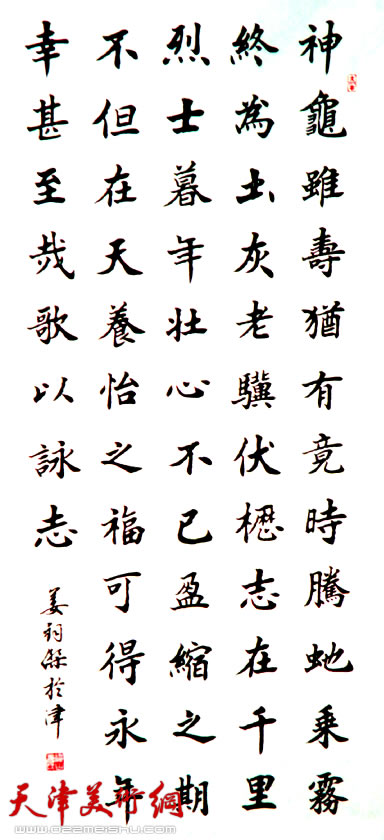 神龜雖壽猶有竟時騰虵乘霧
終為圡灰老驥伏櫪志在千里
烈士暮年壯心不已盈縮之期
不但在天養怡之福可得永年
幸甚至哉歌以詠志
姜於津
天津美術網
www.022meishu.com